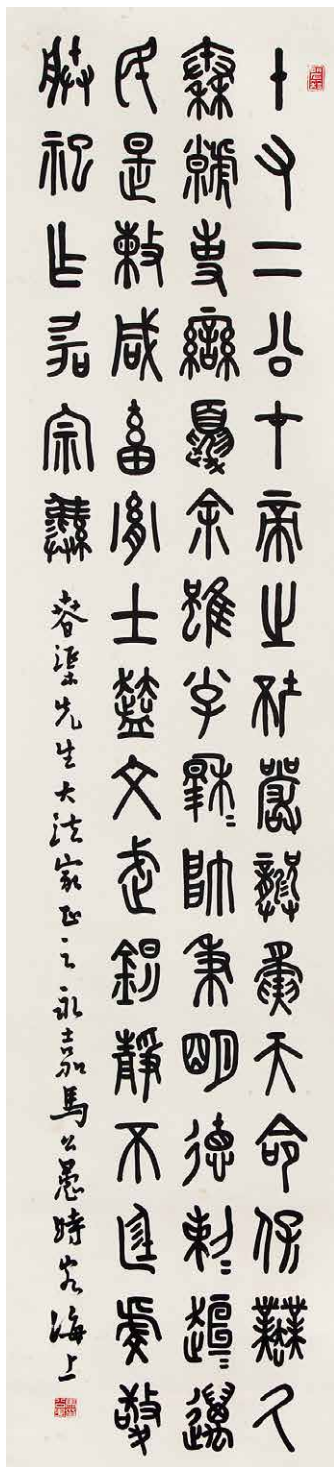 十又二公才帝之坏嚴龔夤天命保業氒
秦虩事蠻夏余雖小子穆=帥秉明德剌=趄=邁
民是敕咸畜胤士盍文武鎮靜不廷虔敬
朕祀乍宗彝 春渠先生大法家正之 永嘉馬公愚時客海上